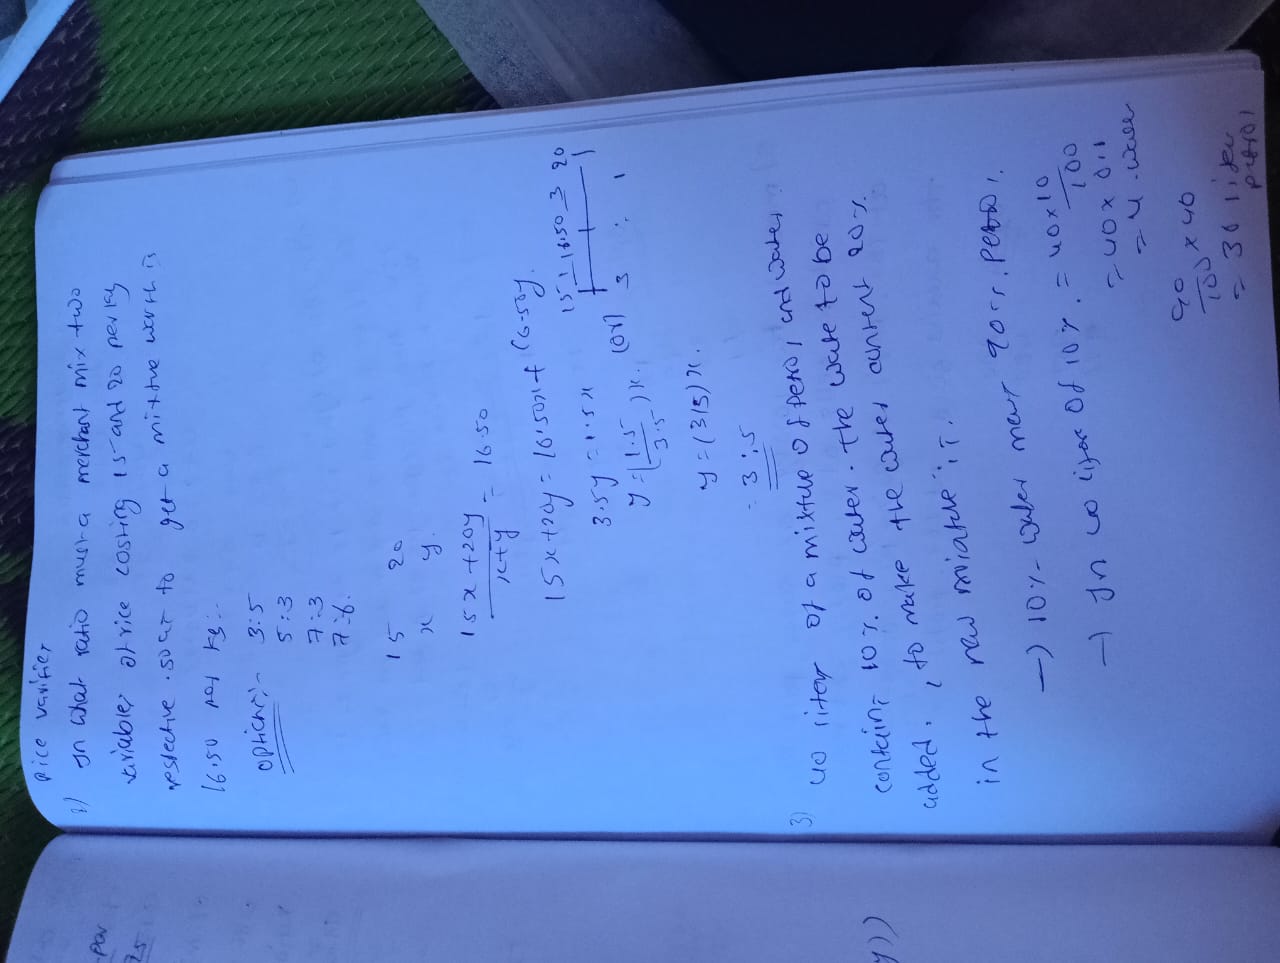 2) Rice varifier
In what ratio must a merchant mix two
variables of rice costing 15 and 20 per kg
respective. so as to get a mixture worth is
16.50 per kg:-
Option:- 3:5
5:3
7:3
7:6.
15 20
x y.
15x+20y / x+y = 16.50
15x+20y = 16.50x + 16.50y.
3.5y = 1.5x
y = (1.5/3.5)x.
y = (3/5)x.
3:5
15 16.50 20
(or) 3 : 1
3) 40 liter of a mixture of petrol and water.
contains 10% of water. the water to be
added, to make the water content 20%
in the new
→ 10% water means 90% petrol.
→ In 40 liter of 10% = 40x10/100
= 40x0.1
= 4 water
90/100 x 40
= 36 liter
petrol